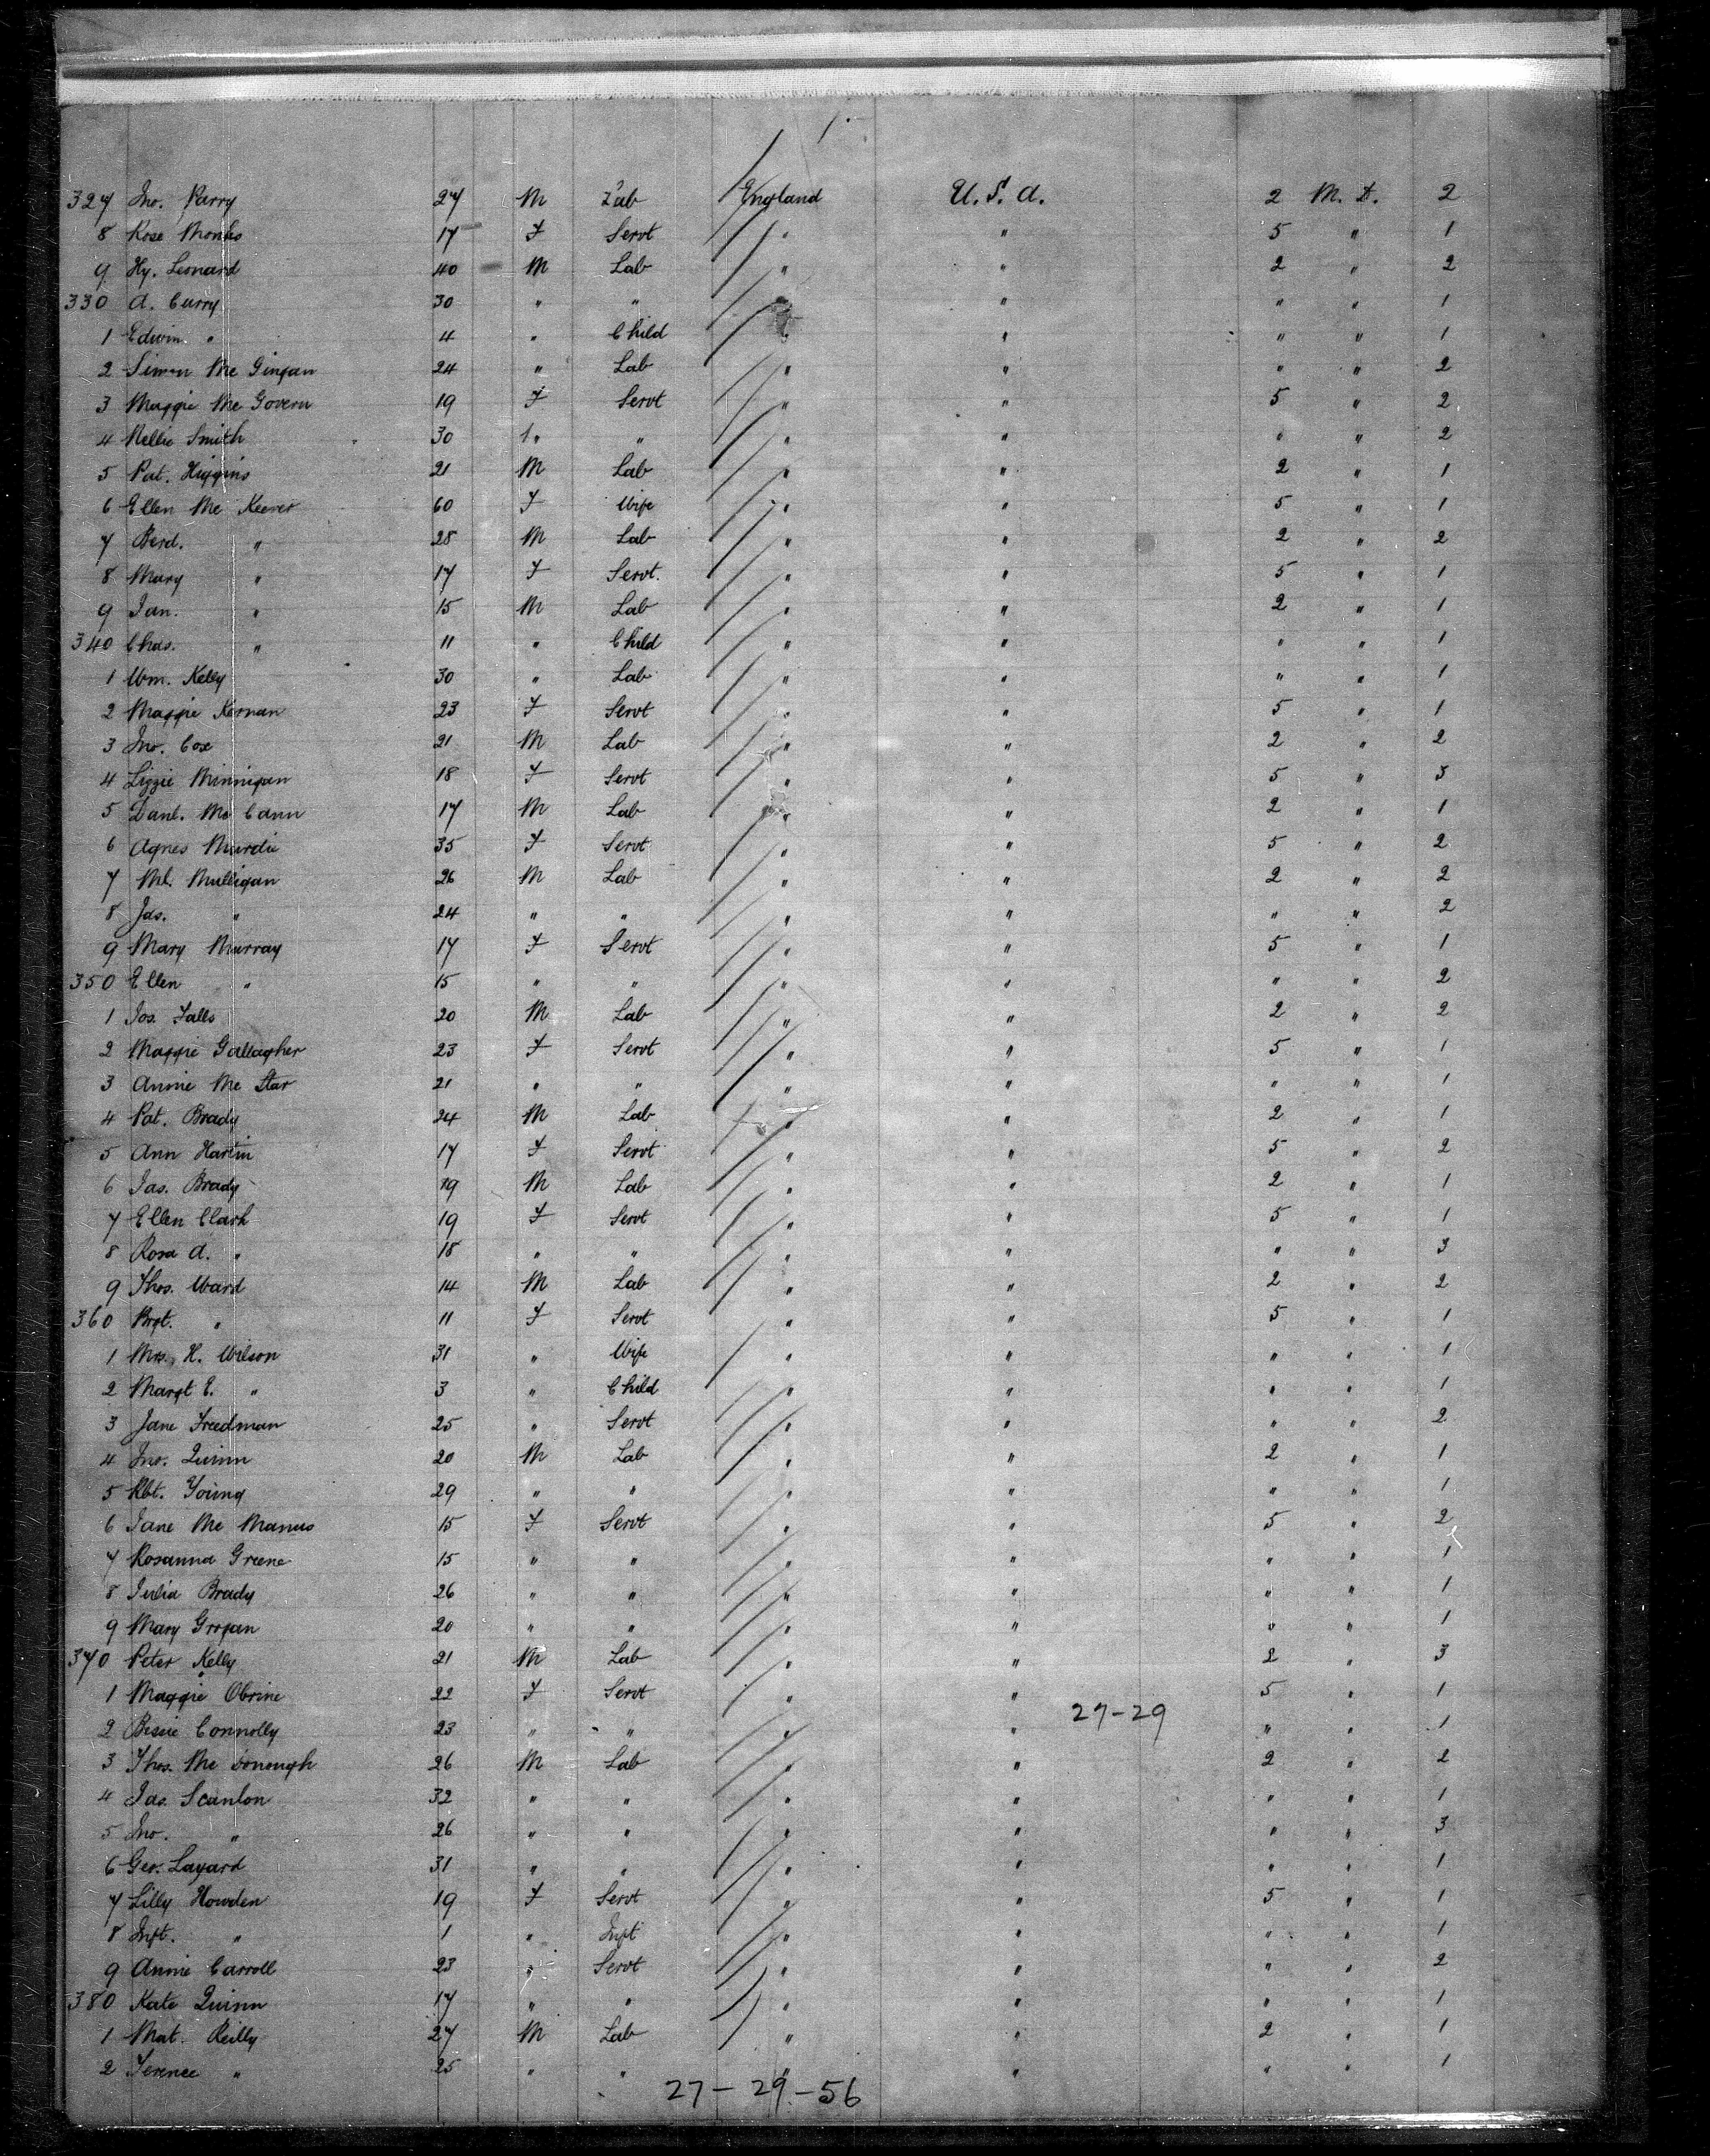 1.
327 Jno. Parry 27 M Lab England U.S.A. 2 M.D. 2
8 Rose Monks 17 F Servt " " 5 " 1
9 Hy. Leonard 40 M Lab " " 2 " 2
330 A. Curry 30 " " " " " " 1
1 Edwin " 4 " Child " " " " 1
2 Simon Mc Gingan 24 " Lab " " " " 2
3 Maggie Mc Govern 19 F Servt " " 5 " 2
4 Nellie Smith 30 " " " " " " 2
5 Pat. Higgins 21 M Lab " " 2 " 1
6 Ellen Mc Keever 60 F Wife " " 5 " 1
7 Berd. " 28 M Lab " " 2 " 2
8 Mary " 17 F Servt. " " 5 " 1
9 Jan. " 15 M Lab " " 2 " 1
340 Chas. " 11 " Child " " " " 1
1 Wm. Kelly 30 " Lab " " " " 1
2 Maggie Kernan 23 F Servt " " 5 " 1
3 Jno. Cox 21 M Lab " " 2 " 2
4 Lizzie Minnigan 18 F Servt " " 5 " 3
5 Danl. Mc Cann 17 M Lab " " 2 " 1
6 Agnes Murdie 35 F Servt " " 5 " 2
7 Ml. Mulligan 26 M Lab " " 2 " 2
8 Jas. " 24 " " " " " " 2
9 Mary Murray 17 F Servt " " 5 " 1
350 Ellen " 15 " " " " " " 2
1 Jos. Falls 20 M Lab " " 2 " 2
2 Maggie Gallagher 23 F Servt " " 5 " 1
3 Annie Mc Star 21 " " " " " " 1
4 Pat. Brady 24 M Lab " " 2 " 1
5 Ann Hartin 17 F Servt " " 5 " 2
6 Jas. Brady 19 M Lab " " 2 " 1
7 Ellen Clark 19 F Servt " " 5 " 1
8 Rosa A. " 18 " " " " " " 3
9 Thos. Ward 14 M Lab " " 2 " 2
360 Brgt. " 11 F Servt " " 5 " 1
1 Mrs. H. Wilson 31 " Wife " " " " 1
2 Margt E. " 3 " Child " " " " 1
3 Jane Freedman 25 " Servt " " " " 2
4 Jno. Quinn 20 M Lab " " 2 " 1
5 Rbt. Young 29 " " " " " " 1
6 Jane Mc Manus 15 F Servt " " 5 " 2
7 Rosanna Greene 15 " " " " " " 1
8 Julia Brady 26 " " " " " " 1
9 Mary Grogan 20 " " " " " " 1
370 Peter Kelly 21 M Lab " " 2 " 3
1 Maggie Obrine 22 F Servt " " 5 " 1
27-29
2 Bessie Connolly 23 " " " " " " 1
3 Thos. Mc Donough 26 M Lab " " 2 " 2
4 Jas. Scanlon 32 " " " " " " 1
5 Jno. " 26 " " " " " " 3
6 Geo. Layard 31 " " " " " " 1
7 Lilly Howden 19 F Servt " " 5 " 1
8 Inft. " 1 " Inft " " " " 1
9 Annie Carroll 23 " Servt " " " " 2
380 Kate Quinn 17 " " " " " " 1
1 Mat. Reilly 27 M Lab " " 2 " 1
2 Terence " 25 " " " " " " 1
27-29-56